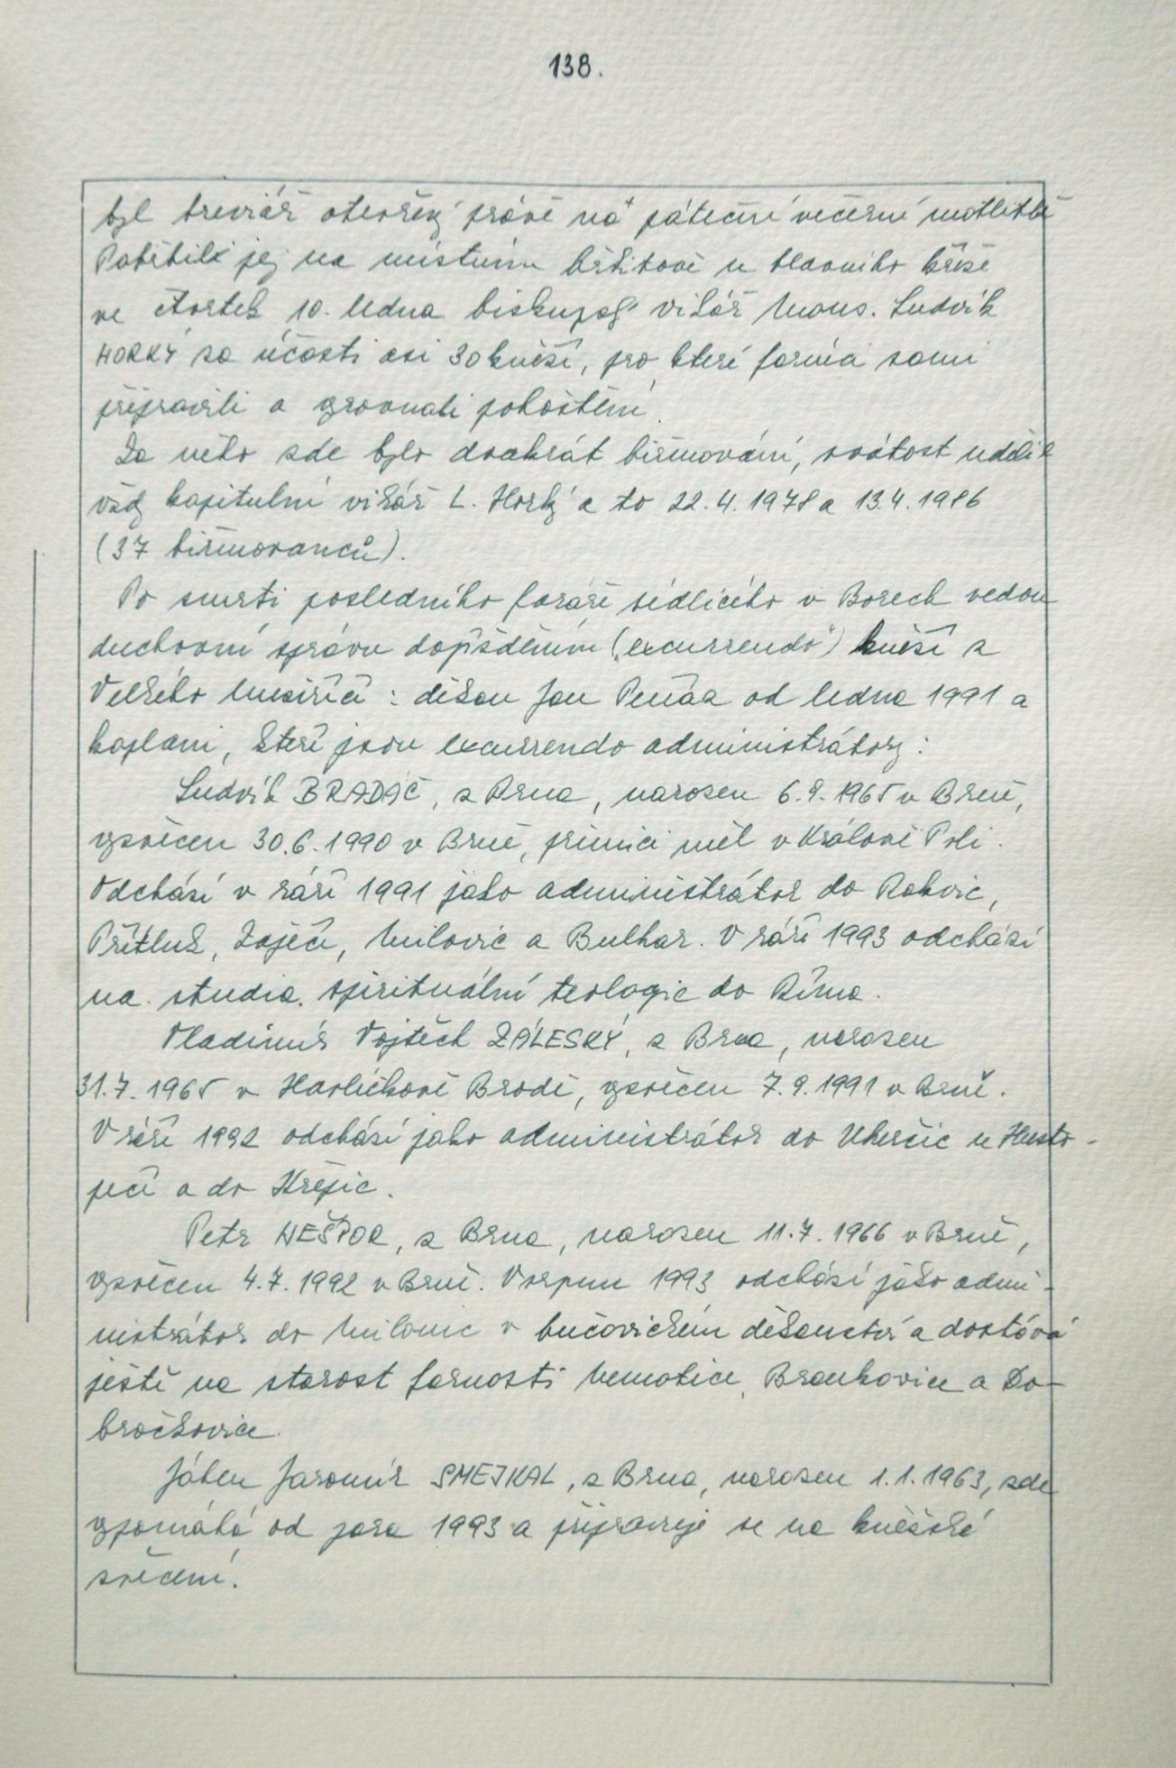 138.
byl breviář otevřený právě na páteční večerní motlitbě
Pohřbili jej na místním hřbitově u hlavního kříže
ve čtvrtek 10. ledna biskupský vikář Mons. Ludvík
HORKÝ za účasti asi 30 kněží, pro které farníci sami
připravili a vyrovnali pohoštění.
Za něho zde bylo dvakrát biřmování, svátost udělil
vždy kapitulní vikář L. Horký a to 22.4.1978 a 13.4.1986
(37 biřmovanců).
Po smrti posledního faráře sídlícího v Borech vedou
duchovní správu dojížděním („excurrendo") kněží z
Velkého Meziříčí: děkan Jan Peňáz od ledna 1991 a
kaplani, kteří jsou excurrendo administrátory:
Ludvík BRADÁČ, z Brna, narozen 6.9.1965 v Brně,
vysvěcen 30.6.1990 v Brně, primici měl v Králově Poli.
Odchází v září 1991 jako administrátor do Rakvic,
Přítluk, Zaječí, Milovic a Bulhar. V září 1993 odchází
na studia spirituální teologie do Říma.
Vladimír Vojtěch ZÁLESKÝ, z Brna, narozen
31.7.1965 v Havlíčkově Brodě, vysvěcen 7.9.1991 v Brně.
V září 1992 odchází jako administrátor do Uherčic u Husto-
pečí a do Křepic.
Petr NEŠPOR, z Brna, narozen 11.7.1966 v Brně,
vysvěcen 4.7.1992 v Brně. V srpnu 1993 odchází jako admi-
nistrátor do Milonic v bučovickém děkanství a dostává
ještě na starost farnosti Nemotice, Brankovice a Do-
bročkovice.
Jáhen Jaromír SMEJKAL, z Brna, narozen 1.1.1963, zde
vypomáhá od jara 1993 a připravuje se na kněžské
svěcení.